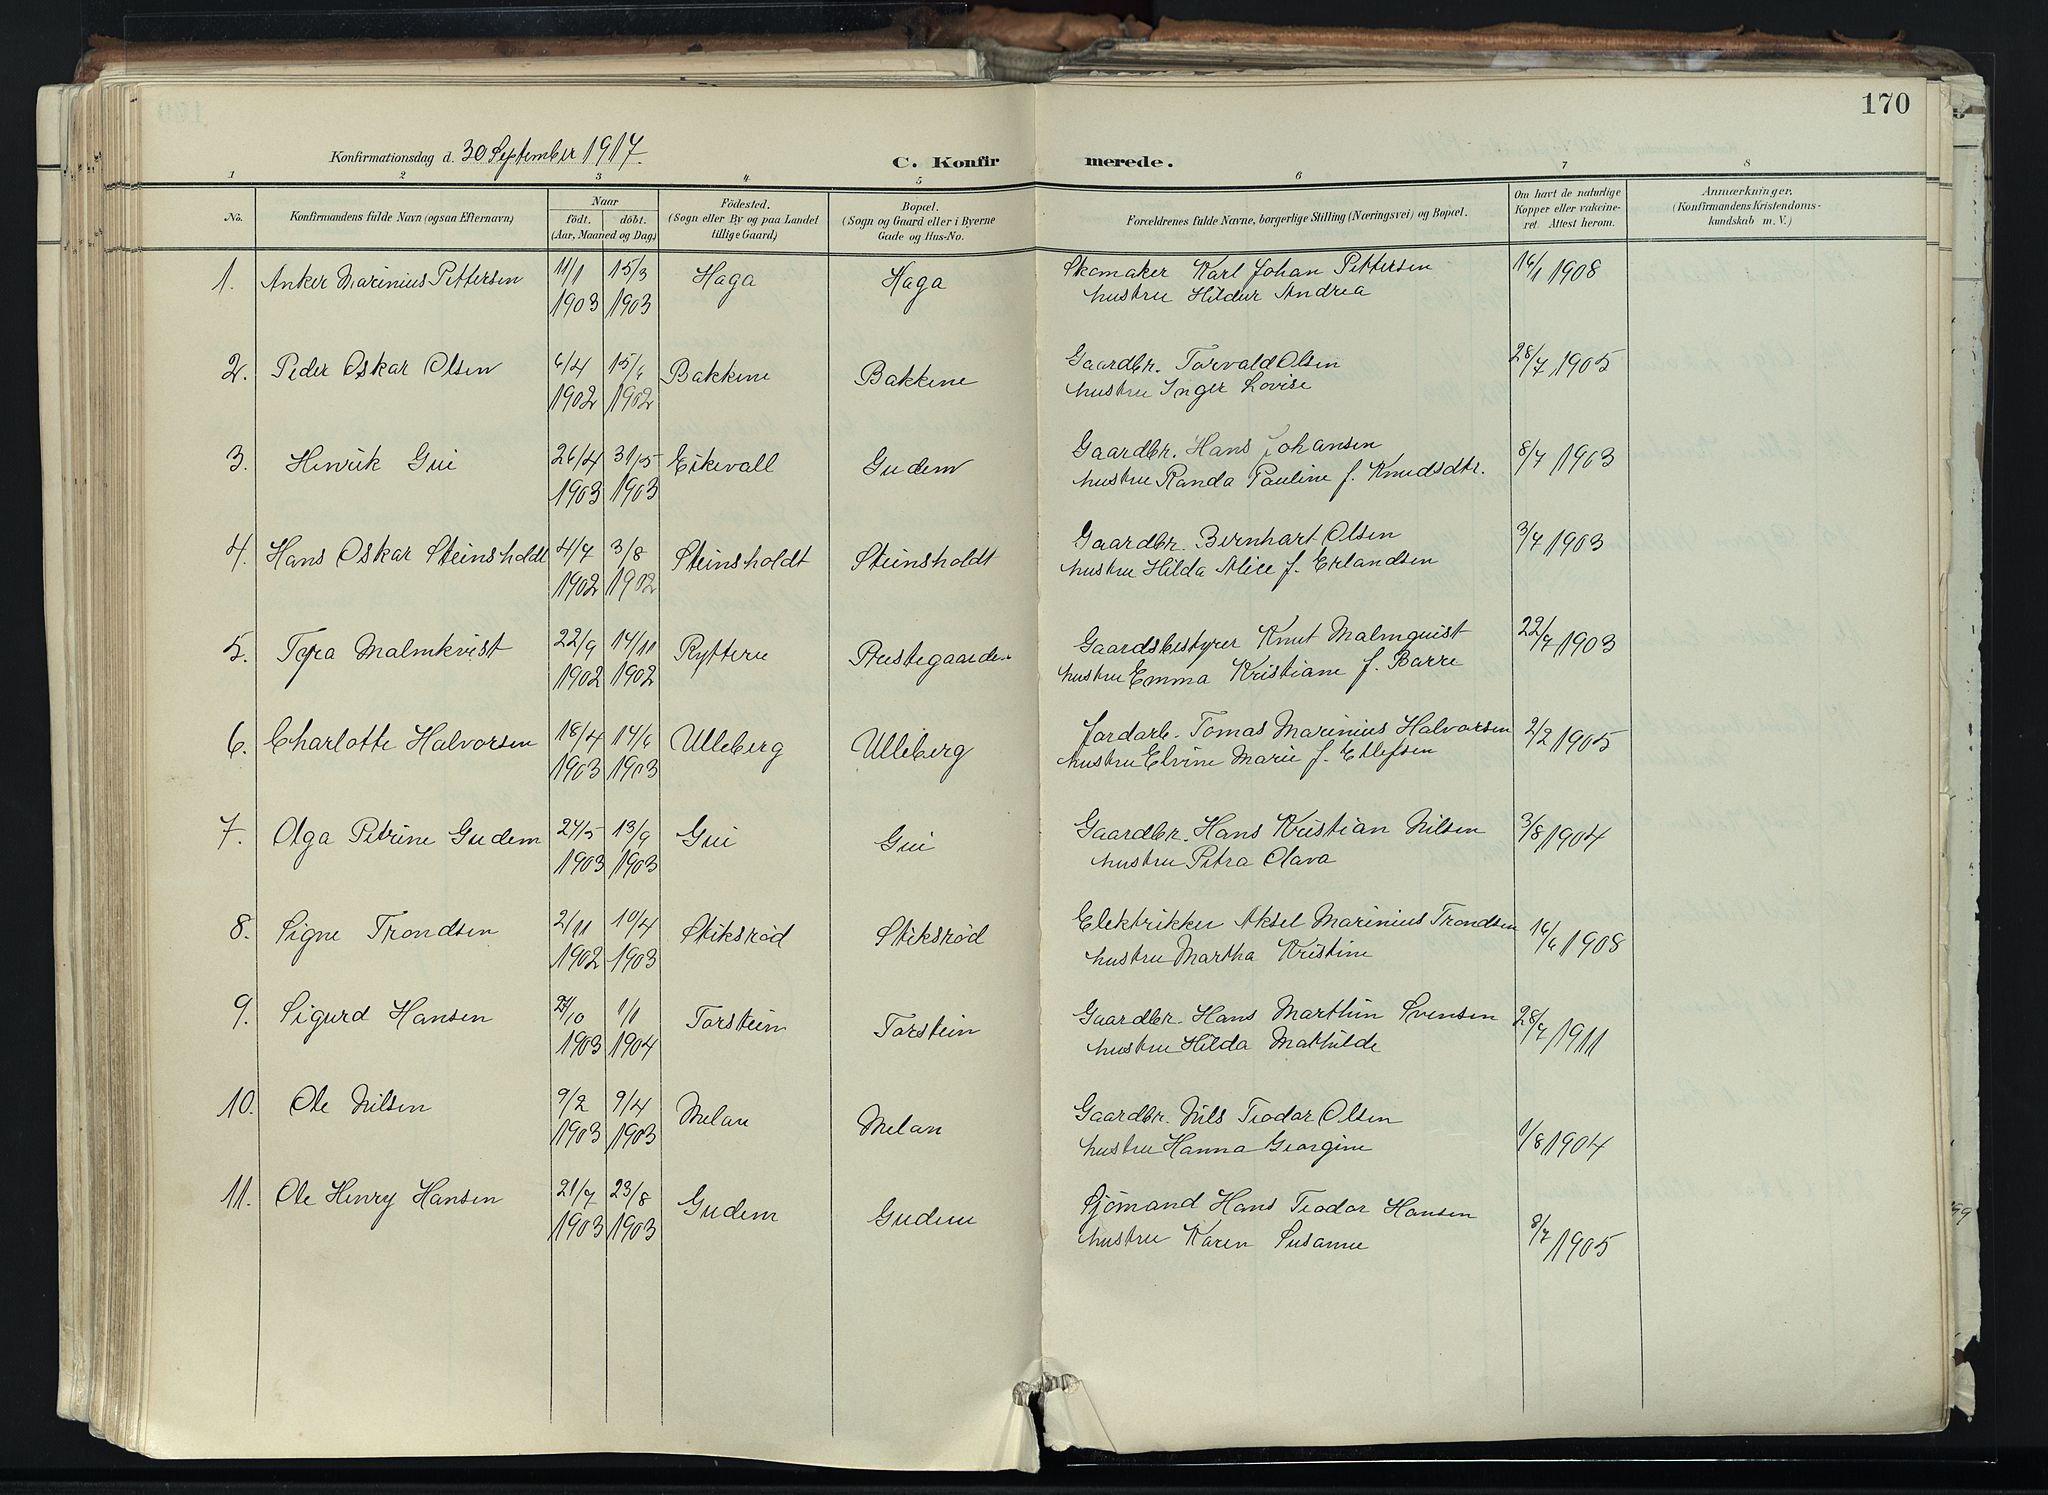 170
Konfirmationsdag d. 30 September 1917.
C. Konfirmerede.
1 2 3 4 5 6 7 8
No. Konfirmandens fulde Navn (ogsaa Efternavn) Naar födt. döbt. (Aar, Maaned og Dag) Födested. (Sogn eller By og paa Landet tillige Gaard) Bopæl. (Sogn og Gaard eller i Byerne Gade og Hus-No. Forældrenes fulde Navne, borgerlige Stilling (Næringsvei) og Bopæl. Om havt de naturlige Kopper eller vakcineret. Attest herom. Anmærkninger. (Konfirmandens Kristendomskundskab m. V.)
1. Anker Marinius Pettersen 11/1 1903 15/3 1903 Haga Haga Skomaker Karl Johan Pettersen 16/1 1908
hustru Hildur Andrea
2. Peder Oskar Olsen 6/4 1902 15/6 1902 Bakkene Bakkene Gaardbr. Torvald Olsen 28/7 1905
hustru Inger Lovise
3. Henrik Gui 26/4 1903 31/5 1903 Eikevall Gudem Gaardbr. Hans Johansen 8/7 1903
hustru Randa Pauline f. Knudsdtr.
4. Hans Oskar Steinsholdt 4/7 1902 3/8 1902 Steinsholdt Steinsholdt Gaardbr. Bernhart Olsen 3/7 1903
hustru Hilda Alice f. Erlandsen
5. Tora Malmkvist 22/9 1902 14/11 1902 Ryttere Prestegaarden Gaardsbestyrer Knut Malmquist 22/7 1903
hustru Emma Kristiane f. Barre
6. Charlotte Halvorsen 18/4 1903 14/6 1903 Ulleberg Ulleberg Jordarb. Tomas Marinius Halvorsen 2/2 1905
hustru Elvine Marie f. Ellefsen
7. Olga Petrine Gudem 24/5 1903 13/9 1903 Gui Gui Gaardbr. Hans Kristian Nilsen 3/8 1904
hustru Petra Olava
8. Signe Trondsen 2/11 1902 10/4 1903 Stiksrød Stiksrød Elektrikker Aksel Marinius Trondsen 16/6 1908
hustru Martha Kristine
9. Sigurd Hansen /10 1903 1/1 1904 Torstein Torstein Gaardbr. Hans Marthin Svensen 28/7 1911
hustru Hilda Mathilde
10. Ole Nilsen 9/2 1903 9/4 1903 Melan Melan Gaardbr. Nils Teodor Olsen 1/8 1904
hustru Hanna Georgine
11. Ole Henry Hansen 21/7 1903 23/8 1903 Gudem Gudem Sjømand Hans Teodor Hansen 8/7 1905
hustru Karen Susanne